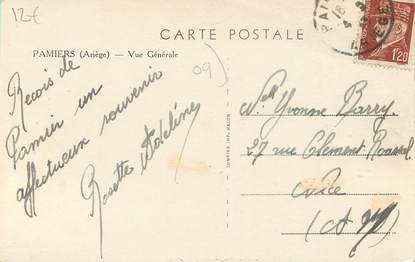 12€
CARTE POSTALE
PAMIERS (Ariège) — Vue Générale
09)
Reçois de
Pamier un
affectueux souvenir
Rosette Adeline
1'20
Mlle Yvonne Barry
27 rue Clément Roassal
Nice
(A M)